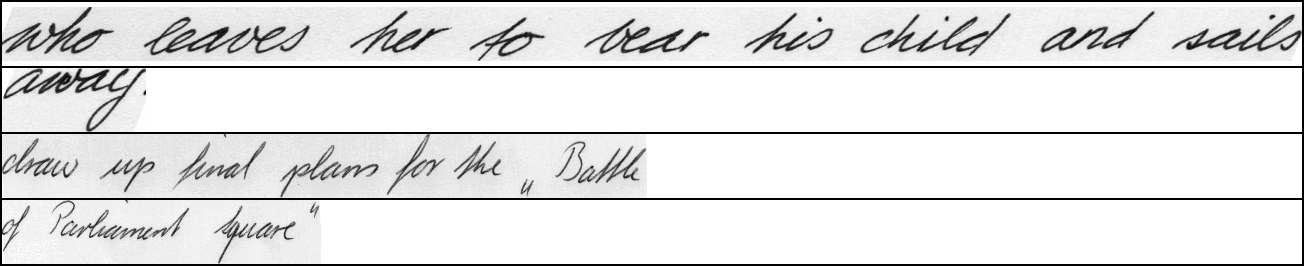 who leaves her to bear his child and sails
away.
draw up final plans for the „ Battle
of Parliament Square"